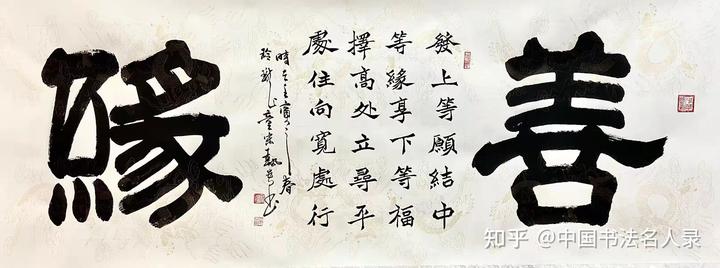 善
發上等願結中
等緣享下等福
擇高处立尋平
處住向寬處行
時在壬寅之春
緣
知乎 @中国书法名人录